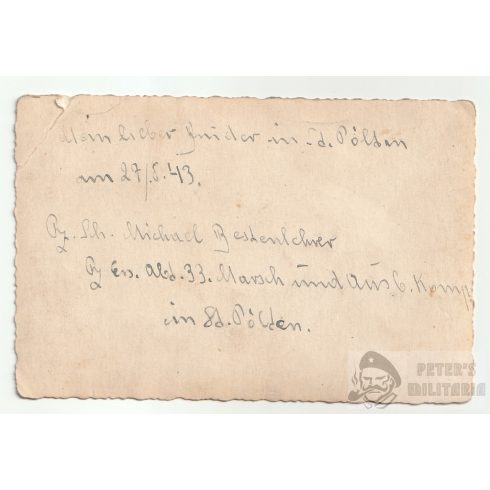 Mein lieber Bruder in St. Pölten
am 27/5.43.
Pz. Sch. Michael Bestenlehrer
Pz Ers. Abt. 33. Marsch und Aus6. Komp.
in St. Pölten.
PETER'S
MILITARIA